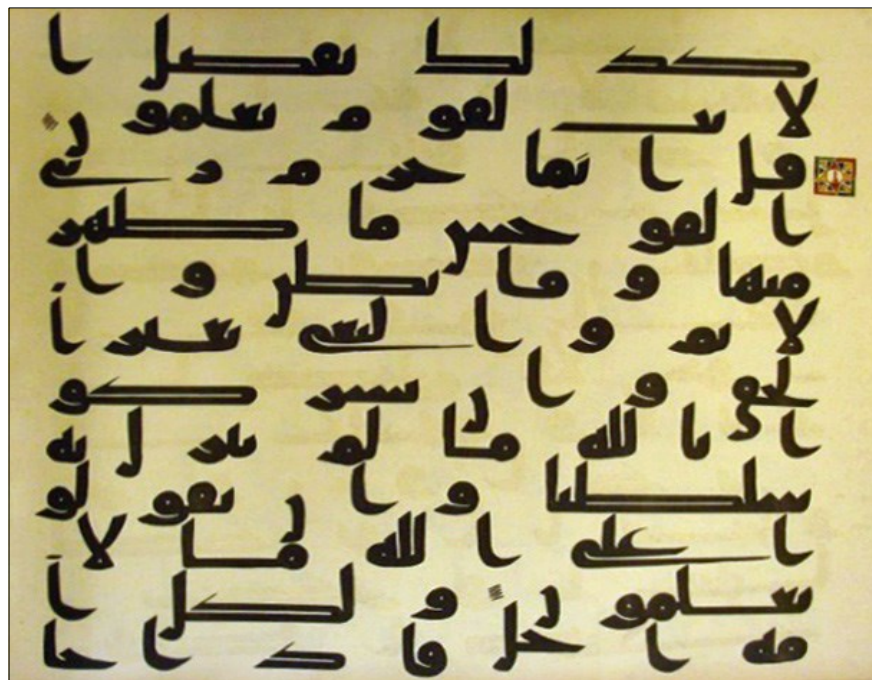 كذلك نفصل ا
لايت لقوم يعلمون
قل انما حرم ربي
الفوحش ما ظهر
منها وما بطن وا
لاثم والبغي بغير ا
لحق وان تشركو
ا بالله ما لم ينزل به
سلطنا وان تقولو
ا على الله ما لا
تعلمون ولكل ا
مة اجل فاذا جا